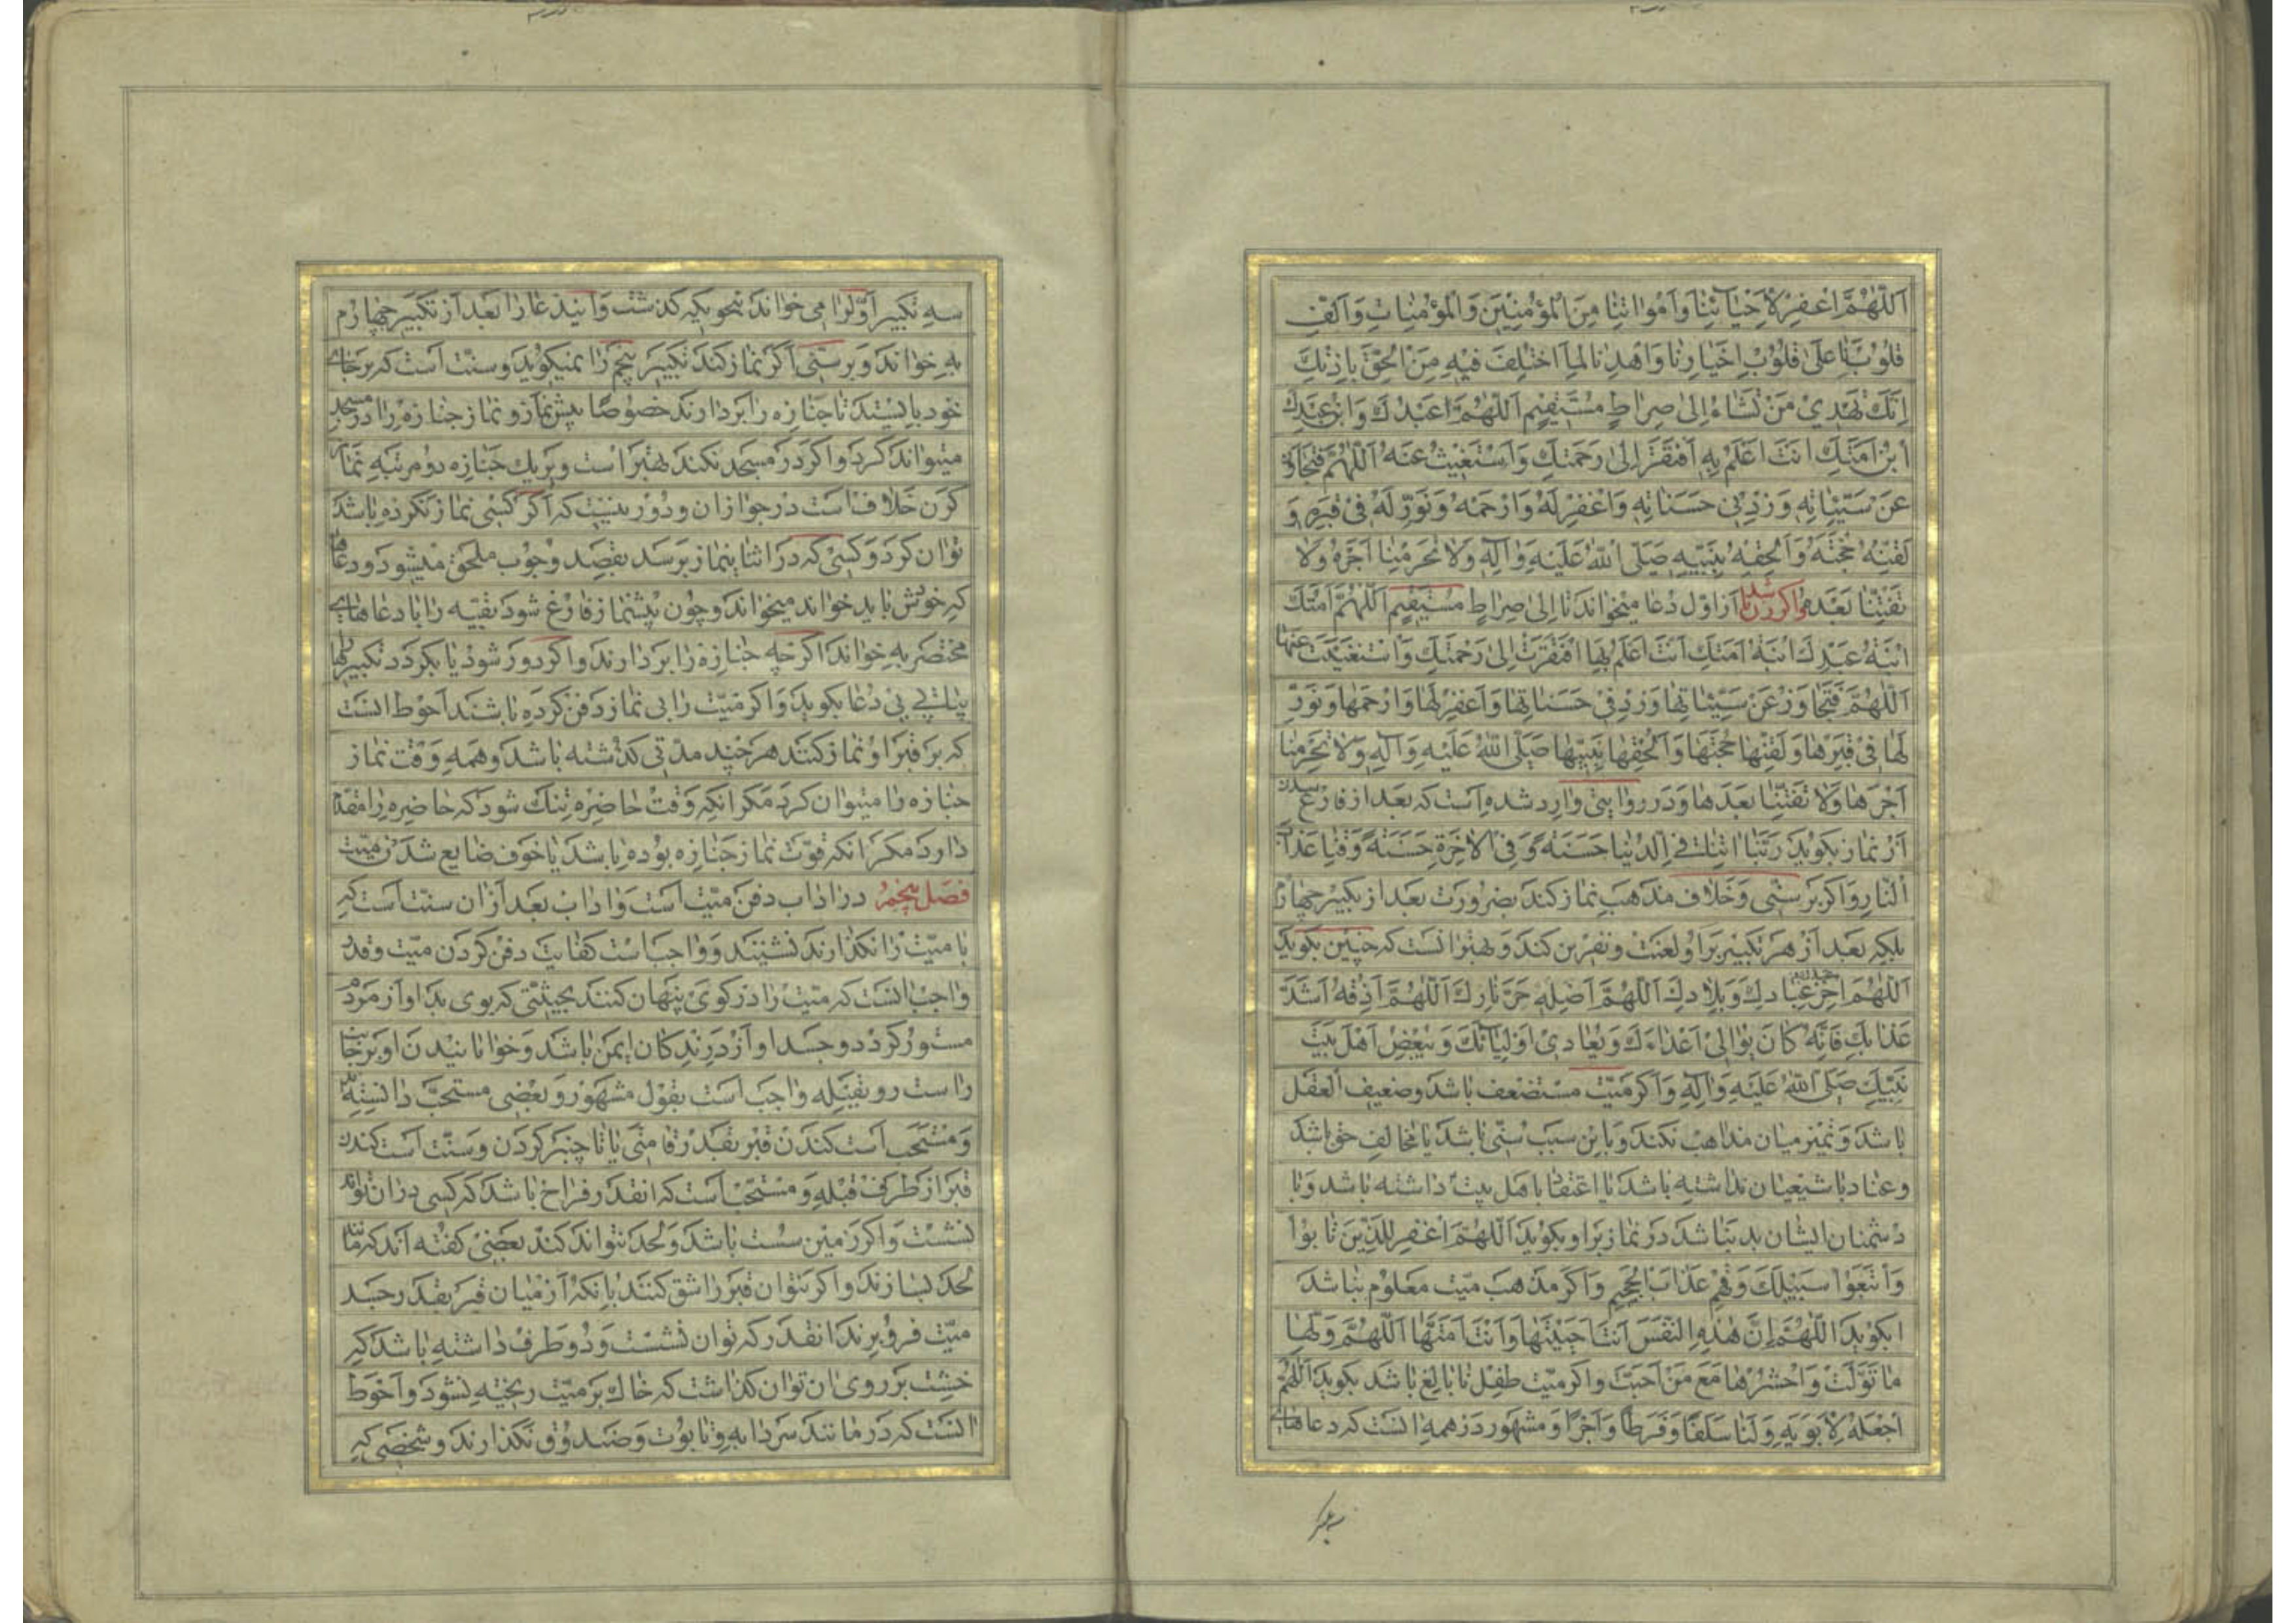 اَللّٰهُمَّ اغْفِرْ لِاَحْيٰائِنٰا وَاَمْوٰاتِنٰا مِنَ الْمُؤْمِنِيْنَ وَالْمُؤْمِنٰاتِ وَاَلِّفْ
قُلُوْبَنٰا عَلىٰ قُلُوْبِ اَخْيٰارِنٰا وَاهْدِنٰا لِمَا اخْتُلِفَ فِيْهِ مِنَ الْحَقِّ بِاِذْنِكَ
اِنَّكَ تَهْدِيْ مَنْ تَشٰاءُ اِلىٰ صِرٰاطٍ مُسْتَقِيْمٍ اَللّٰهُمَّ عَبْدُكَ وَابْنُ عَبْدِكَ
ابْنُ اَمَتِكَ اَنْتَ اَعْلَمُ بِهِ اَفْتَقَرَ اِلىٰ رَحْمَتِكَ وَاسْتَغْنَيْتَ عَنْهُ اَللّٰهُمَّ فَتَجٰاوَزْ
عَنْ سَيِّئٰاتِهِ وَزِدْ فِيْ حَسَنٰاتِهِ وَاغْفِرْ لَهُ وَارْحَمْهُ وَنَوِّرْ لَهُ فِيْ قَبْرِهِ وَ
لَقِّنْهُ حُجَّتَهُ وَاَلْحِقْهُ بِنَبِيِّهِ صَلَّى اللّٰهُ عَلَيْهِ وَاٰلِهِ وَلاٰ تَحْرِمْنٰا اَجْرَهُ وَلاٰ
تَفْتِنّٰا بَعْدَهُ واكر زن باشد از اول دعا ميخواند تا اِلىٰ صِرٰاطٍ مُسْتَقِيْمٍ اَللّٰهُمَّ اَمَتُكَ
ابْنَةُ عَبْدِكَ ابْنَةُ اَمَتِكَ اَنْتَ اَعْلَمُ بِهٰا افْتَقَرَتْ اِلىٰ رَحْمَتِكَ وَاسْتَغْنَيْتَ عَنْهٰا
اَللّٰهُمَّ فَتَجٰاوَزْ عَنْ سَيِّئٰاتِهٰا وَزِدْ فِيْ حَسَنٰاتِهٰا وَاغْفِرْ لَهٰا وَارْحَمْهٰا وَنَوِّرْ
لَهٰا فِيْ قَبْرِهٰا وَلَقِّنْهٰا حُجَّتَهٰا وَاَلْحِقْهٰا بِنَبِيِّهٰا صَلَّى اللّٰهُ عَلَيْهِ وَاٰلِهِ وَلاٰ تَحْرِمْنٰا
اَجْرَهٰا وَلاٰ تَفْتِنّٰا بَعْدَهٰا ودر روايتى وارد شده است كه بعد از فارغ شدن
از نماز بكويد رَبَّنٰا اٰتِنٰا فِي الدُّنْيٰا حَسَنَةً وَفِي الْاٰخِرَةِ حَسَنَةً وَقِنٰا عَذٰابَ
النّٰارِ واكر بر سنّى وخلاف مذهب نماز كند بضرورت بعد از تكبير چهارم
بلكه بعد از هر تكبير بر او لعنت ونفرين كند وبهتر انست كه چنين بكويد
اَللّٰهُمَّ اخْزِ عَبْدَكَ فِيْ عِبٰادِكَ وَبِلاٰدِكَ اَللّٰهُمَّ اَصْلِهِ حَرَّ نٰارِكَ اَللّٰهُمَّ اَذِقْهُ اَشَدَّ
عَذٰابِكَ فَاِنَّهُ كٰانَ يُوٰالِيْ اَعْدٰاءَكَ وَيُعٰادِيْ اَوْلِيٰائَكَ وَيُبْغِضُ اَهْلَ بَيْتِ
نَبِيِّكَ صَلَّى اللّٰهُ عَلَيْهِ وَاٰلِهِ واكر ميّت مستضعف باشد وضعيف العقل
باشد وتميز ميان مذاهب نكند وباين سبب سنّى باشد يا مخالف حق باشد
وعناد با شيعيان نداشته باشد يا اعتقاد باهل بيت داشته باشد وبا
دشمنان ايشان بد نباشد در نماز بر او بكويد اَللّٰهُمَّ اغْفِرْ لِلَّذِيْنَ تٰابُوْا
وَاتَّبَعُوْا سَبِيْلَكَ وَقِهِمْ عَذٰابَ الْجَحِيْمِ واكر مذهب ميت معلوم نباشد
بكويد اَللّٰهُمَّ اِنَّ هٰذِهِ النَّفْسَ اَنْتَ اَحْيَيْتَهٰا وَاَنْتَ اَمَتَّهٰا اَللّٰهُمَّ وَلِّهٰا
مٰا تَوَلَّتْ وَاحْشُرْهٰا مَعَ مَنْ اَحَبَّتْ واكر ميّت طفل نابالغ باشد بكويد اَللّٰهُمَّ
اجْعَلْهُ لِاَبَوَيْهِ وَلَنٰا سَلَفًا وَفَرَطًا وَاَجْرًا ومشهور در همه انست كه دعاهاى
سه تكبير
سه تكبير اوّل را مى خواند بنحويكه كذشت وانيدعا را بعد از تكبير چهارم
به خواند وبر سنّى اكر نماز كند تكبير پنجم را نميكويد وسنّت است كه بر جاى
خود بايستد تا جنازه را بردارند خصوصًا پيش نماز ونماز جنازه را در مسجد
ميتواند كرد واكر در مسجد نكند بهتر است وبر يك جنازه دو مرتبه نماز
كردن خلاف است در جواز ان ودور نيست كه اكر كسى نماز نكرده باشد
توان كرد وكسى كه در اثناى نماز برسد بقصد وجوب ملحق ميشود ودعاها
كه خودش بايد خواند ميخواند وچون پيشنماز فارغ شود بقيّه را با دعاهاى
مختصر به خواند اكرچه جنازه را بردارند واكر دور شود يا بكردد تكبيرها
پياپى بى دعا بكويد واكر ميّت را بى نماز دفن كرده باشند احوط انست
كه بر قبر او نماز كنند هر چند مدّتى كذشته باشد وهمه وقت نماز
جنازه را ميتوان كرد مكر انكه وقت حاضره تنك شود كه حاضره را مقدم
دارد مكر انكه فوت نماز جنازه بوده باشد يا خوف ضايع شدن ميّت
فصل پنجم در اداب دفن ميّت است واداب بعد از ان سنّت است كه
تا ميّت را نكذارند ننشينند وواجب است كفايت دفن كردن ميّت وقدر
واجب انست كه ميّت را در كوى پنهان كنند بحيثيتى كه بوى بد او از مردم
مستور كردد وجسد او از درندكان ايمن باشد وخوابانيدن او بر جانب
راست رو بقبله واجب است بقول مشهور وبعضى مستحب دانسته اند
ومستحب است كندن قبر بقدر قامتى يا تا چنبر كردن وسنّت است كندن
قبر از طرف قبله ومستحب است كه انقدر فراخ باشد كه كسى در ان تواند
نشست واكر زمين سست باشد ولحد نتواند كند بعضى كفته اند كه مانند
لحد بسازند واكر نتوان قبر را شق كنند بانكه از ميان قبر بقدر جسد
ميّت فرو برند انقدر كه توان نشست ودو طرف داشته باشد كه
خشت بر روى ان توان كذاشت كه خاك بر ميّت ريخته نشود واحوط
انست كه در مانند سردابه وتابوت وصندوق نكذارند وشخصى كه